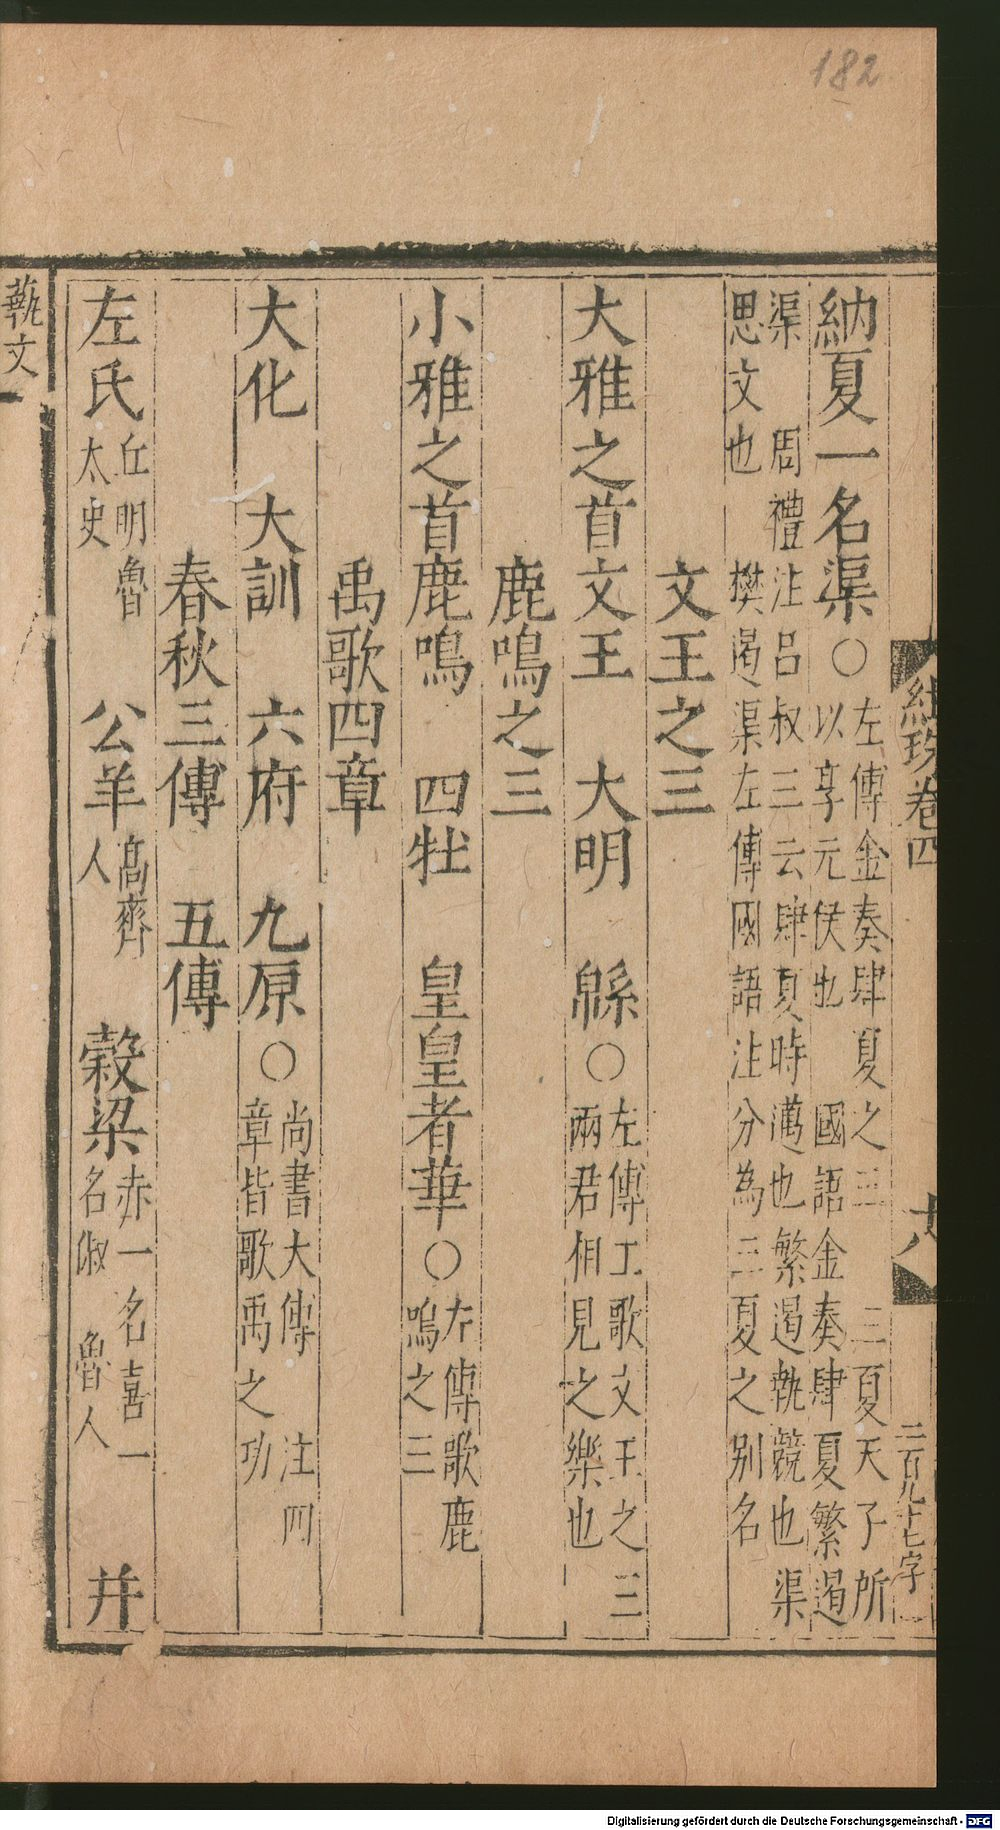 182
紺珠卷四
二百九十七字
納夏一名渠○左傳金奏肆夏之三 三夏天子所
以享元侯也 國語金奏肆夏繁遏
渠 周禮注呂叔三云肆夏時邁也繁遏執競也渠
思文也 樊遏渠左傳國語注分為三夏之別名
文王之三
大雅之首文王 大明 緜○左傳工歌文王之三
兩君相見之樂也
鹿鳴之三
小雅之首鹿鳴 四牡 皇皇者華○左傳歌鹿
鳴之三
禹歌四章
大化 大訓 六府 九原○尚書大傳 注四
章皆歌禹之功
春秋三傳 五傳
左氏丘明魯太史 公羊高齊人 穀梁赤一名喜一名俶 魯人 并
藝文
Digitalisierung gefördert durch die Deutsche Forschungsgemeinschaft - DFG